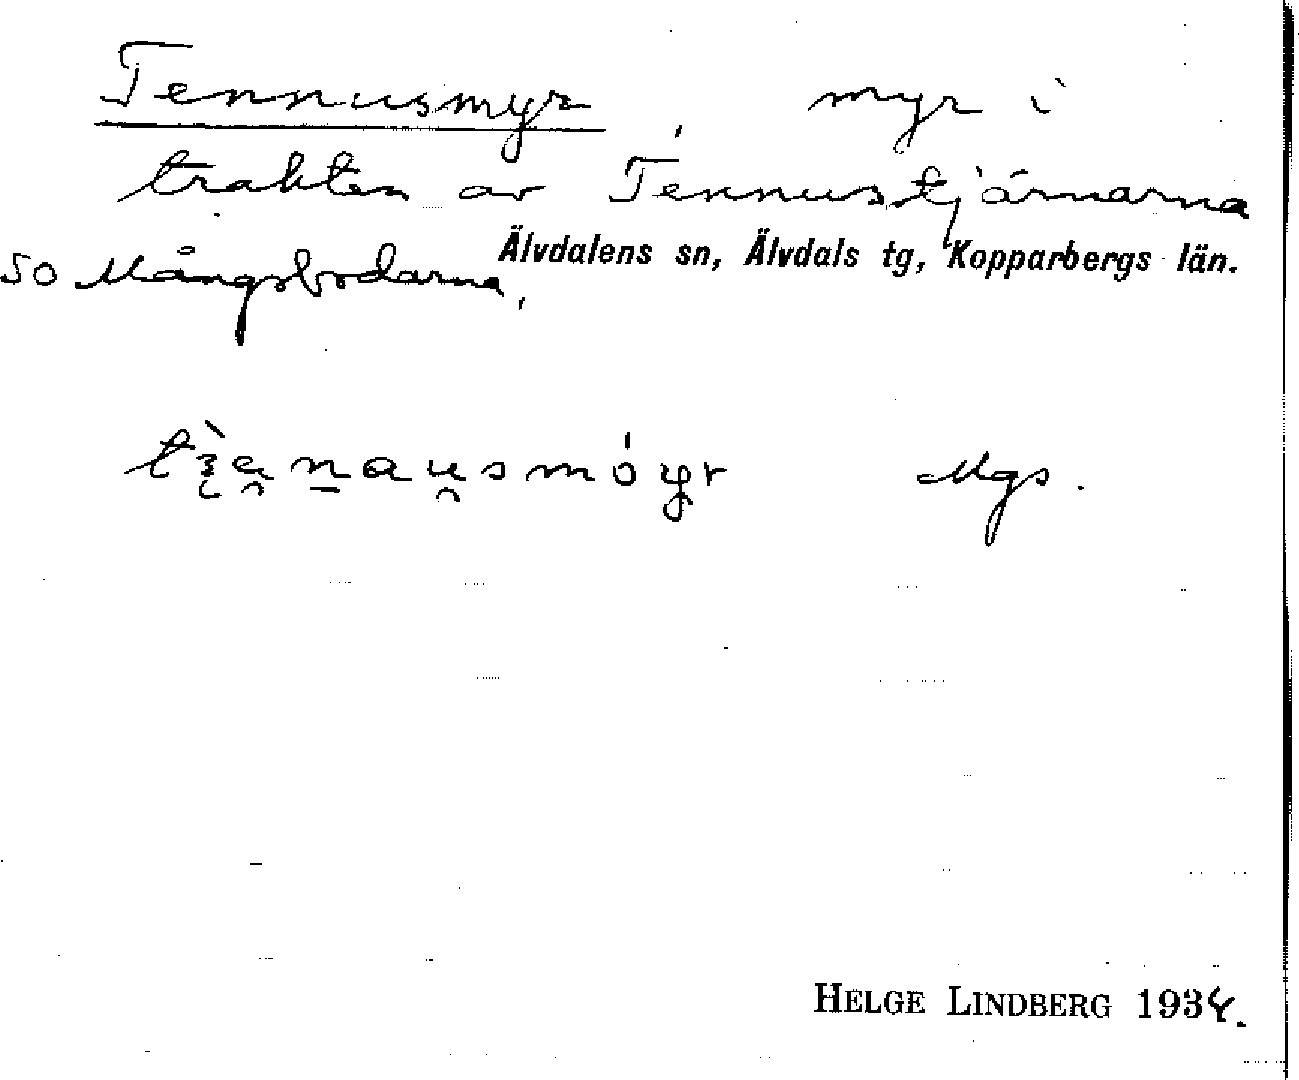 Tennusmyr myr i
trakten av Tennustjärnarna
Älvdalens sn, Älvdals tg, Kopparbergs län.
SO Mångsbodarna,
Mgs.
HELGE LINDBERG 1934.